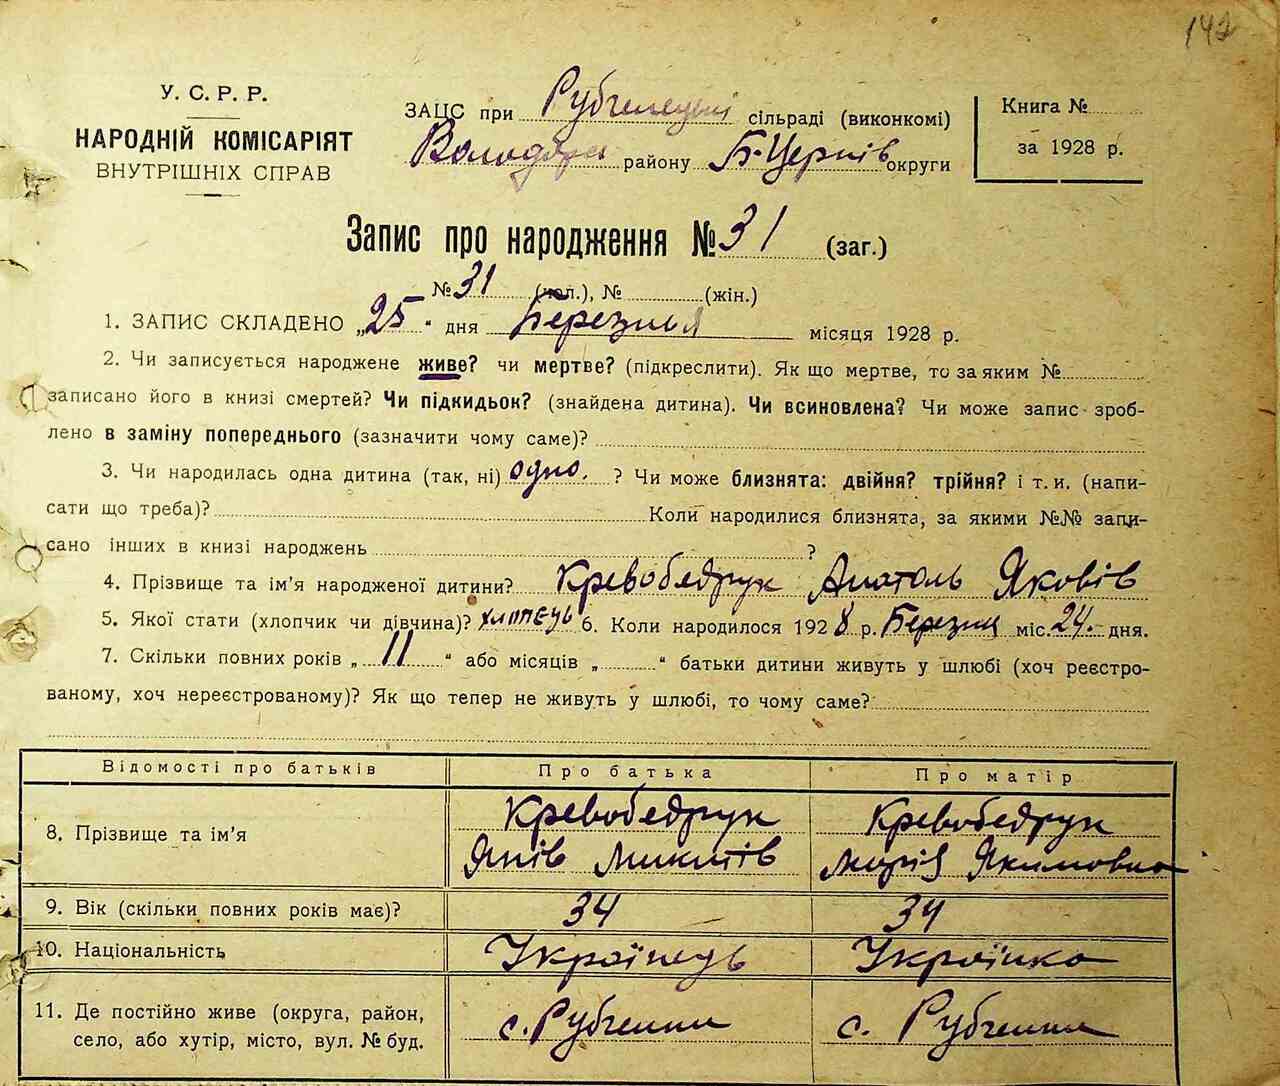 142
У. С. Р. Р.
НАРОДНІЙ КОМІСАРІЯТ
ВНУТРІШНІХ СПРАВ
ЗАЦС при Рубченецькі сільраді (виконкомі)
Володарс району Б-Церків округи
Книга №
за 1928 р.
Запис про народження № 31 (заг.)
№ 31 (чол.), № (жін.)
1. ЗАПИС СКЛАДЕНО „25“ дня Березня місяця 1928 р.
2. Чи записується народжене живе? чи мертве? (підкреслити). Як що мертве, то за яким №
записано його в книзі смертей? Чи підкидьок? (знайдена дитина). Чи всиновлена? Чи може запис зроб-
лено в заміну попереднього (зазначити чому саме)?
3. Чи народилась одна дитина (так, ні) одно. ? Чи може близнята: двійня? трійня? і т. и. (напи-
сати що треба)? Коли народилися близнята, за якими №№ запи-
сано інших в книзі народжень ?
4. Прізвище та ім’я народженої дитини? Кревобедрук Анатоль Яковів
5. Якої стати (хлопчик чи дівчина)? хлопець 6. Коли народилося 1928 р. Березня міс. 24. дня.
7. Скільки повних років „ 11 “ або місяців „ “ батьки дитини живуть у шлюбі (хоч реєстро-
ваному, хоч нереєстрованому)? Як що тепер не живуть у шлюбі, то чому саме?
Відомості про батьків Про батька Про матір
8. Прізвище та ім’я Кревобедрук Яків Микитів Кревобедрук Марія Якимовна
9. Вік (скільки повних років має)? 34 34
10. Національність Українець Українка
11. Де постійно живе (округа, район, с. Рубченки с. Рубченки
село, або хутір, місто, вул. № буд.